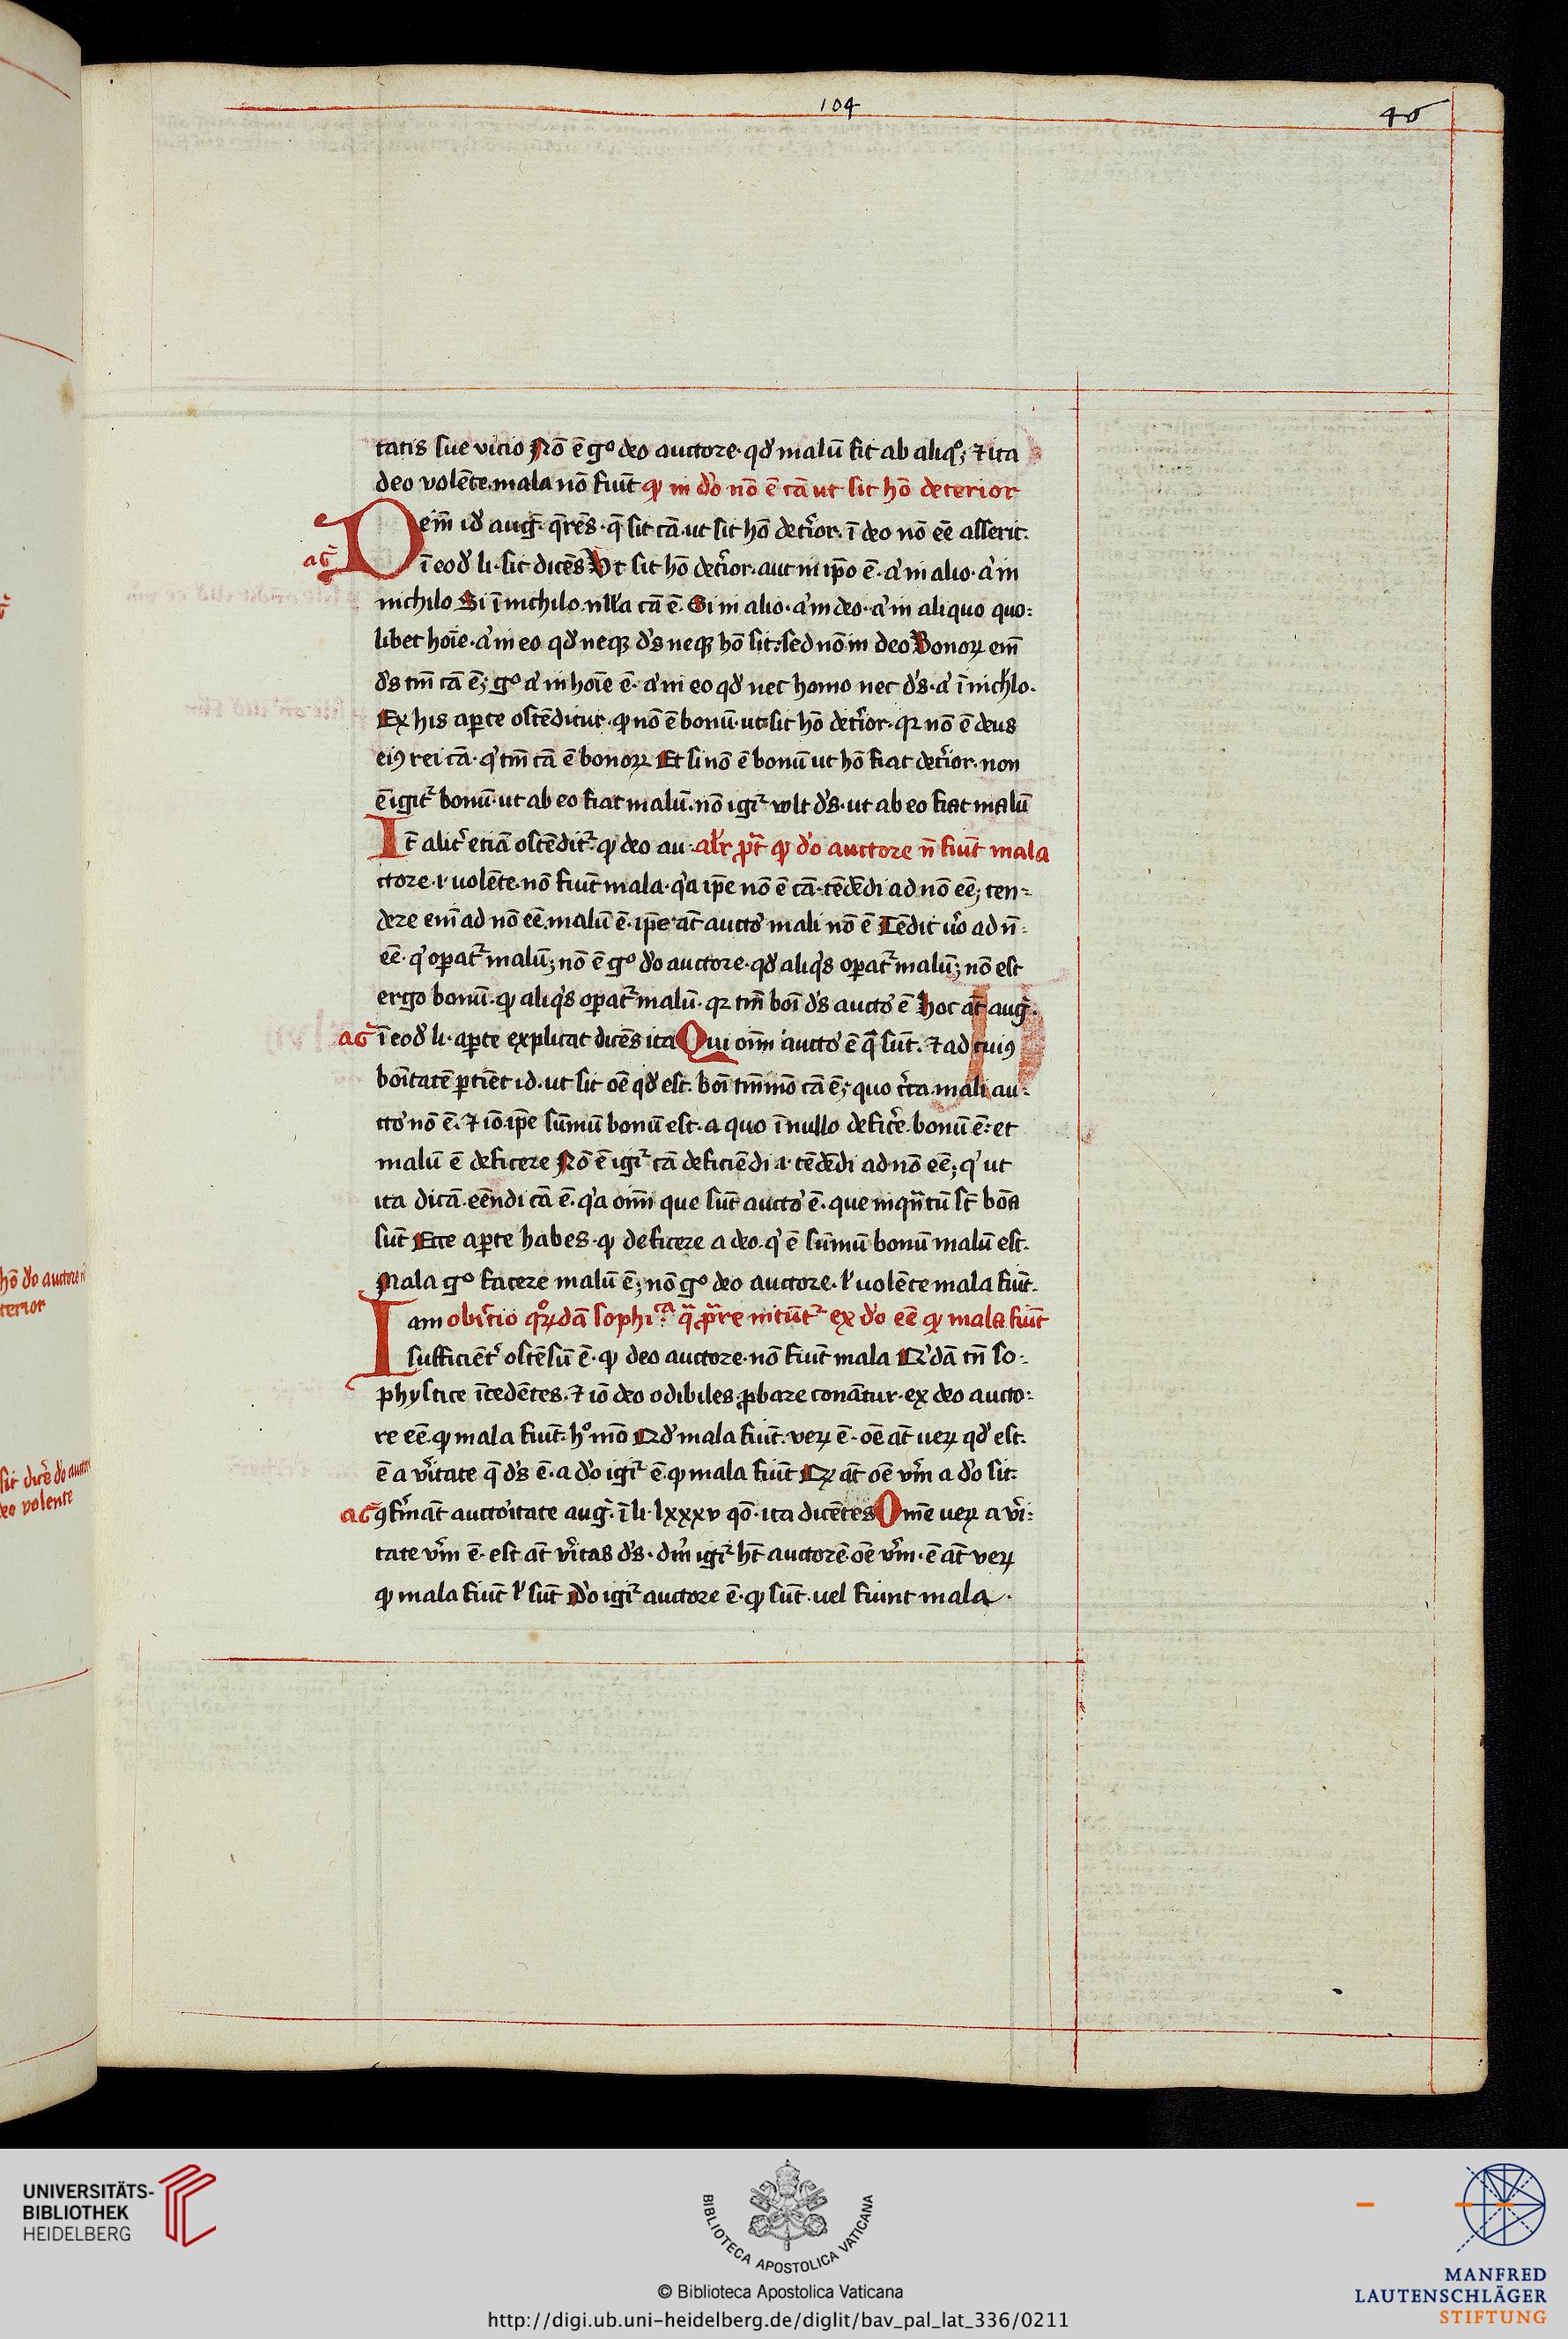 104
46
tatis sue vicio Nō ē gͦ deo auctore· qd̕ malū fit ab aliqͦ; ⁊ ita
deo volēte mala nō fiūt ꝙ in d̕o nō ē cā ut sit hō deterior
Deīn id̕ aug̕· q̄rēs· q̄ sit cā· ut sit hō det̕ior· ī deo nō eē asserit·
ag̕
ī eod̕ li· sic dicēs Vt sit hō det̕ior· aut in ip̄o ē· a̕ in alio· a̕ in
nichilo Si ī nichilo· nll̕a cā ē· Si in alio· a̕ in deo· a̕ in aliquo quo:
libet hoīe· a̕ in eo qd̕ neqꝫ d̕s neqꝫ hō sit: sed nō in deo Bonoꝝ em̄
d̕s tm̄ cā ē; gͦ a̕ in hoīe ē· a̕ in eo qd̕ nec homo nec d̕s· a̕ ī nichlo·
Ex his aꝑte ostēditur· ꝙ nō ē bonū· ut sit hō det̕ior· qꝛ nō ē deus
eiꝰ rei cā· q̕ tm̄ cā ē bonoꝝ Et si nō ē bonū ut hō fiat det̕ior· non
ē igit̕ bonū· ut ab eo fiat malū· nō igi̕ vult d̕s· ut ab eo fiat malū
It̄ alit̕ etiā ostēdit̕· ꝙ deo au· al̕r ꝓt ꝙ d̕o auctore n̄ fiūt mala
ctore· ł uolēte nō fiūt mala· q̕a ip̄e nō ē cā· tēdēdi ad nō eē; ten:
dere eīm ad nō eē malū ē· ip̄e at̄ aucto̕ mali nō ē Tēdit ū̕o ad n̄:
eē· q̕ oꝑat̕ malū; nō ē gͦ d̕o auctore· qd̕ aliq̕s oꝑat̕ malū; nō est
ergo bonū· ꝙ aliq̕s oꝑat̕ malū· qꝛ tm̄ boī d̕s aucto̕ ē Hoc at̄ aug̕·
ag̕ ī eod̕ li· aꝑte explicat dicēs ita Qui oīm aucto̕ ē q̄ sūt· ⁊ ad cuiꝰ
boītatē ꝑtiēt id· ut sit oē qd̕ est· boī tm̄mō cā ē; quo c̕ca mali au:
cto̕ nō ē· ⁊ iō ip̄e sūmū bonū est· a quo ī nullo defic̕e bonū ē: et
malū ē deficere Nō ē igi̕ cā deficiēdi ł tēdēdi ad nō eē; q̕ ut
ita dicā· eēndi cā ē· q̕a oīm que sūt aucto̕ ē· que inqn̄tū st̄ bōa
sūt Ecce aꝑte habes· ꝙ deficere a deo· q̕ ē sūmū bonū malū est·
Mala gͦ facere malū ē; nō gͦ deo auctore· ł uolēte mala fiūt·
Iam obi̕ctio qͦꝝdā sophi᷑ᵃ q̄ ꝓ̄re nitūt̕ ex d̕o eē ꝙ mala fiūt
sufficiēt̕ ostēsū ē· ꝙ deo auctore· nō fiūt mala Q̕dā tn̄ so:
phystice īcedētes· ⁊ iō deo odibiles ꝓbare conātur· ex deo aucto:
re eē ꝙ mala fiūt· hͦ mō Qd̕ mala fiūt· veꝝ ē· oē at̄ ueꝝ qd̕ est·
ē a v̕itate q̄ d̕s ē· a d̕o igi̕ ē ꝙ mala fiūt Qꝙ at̄ oē v̕m a d̕o sit·
ag̕ ꝯf̕māt aucto̕itate aug̕· ī li· lxxxv qō· ita dicētes Omē ueꝝ a v̕i:
tate v̕m ē· est at̄ v̕itas d̕s· dm̄ igi̕ ht̄ auctorē oē v̕m· ē at̄ veꝝ
ꝙ mala fiūt ł sūt D̕o igi̕ auctore ē· ꝙ sūt· uel fiunt mala·
hō d̕o auctore
terior
deo volente
UNIVERSITÄTS-
BIBLIOTHEK
HEIDELBERG
BIBLIOTECA APOSTOLICA VATICANA
© Biblioteca Apostolica Vaticana
http://digi.ub.uni-heidelberg.de/diglit/bav_pal_lat_336/0211
MANFRED
LAUTENSCHLÄGER
STIFTUNG